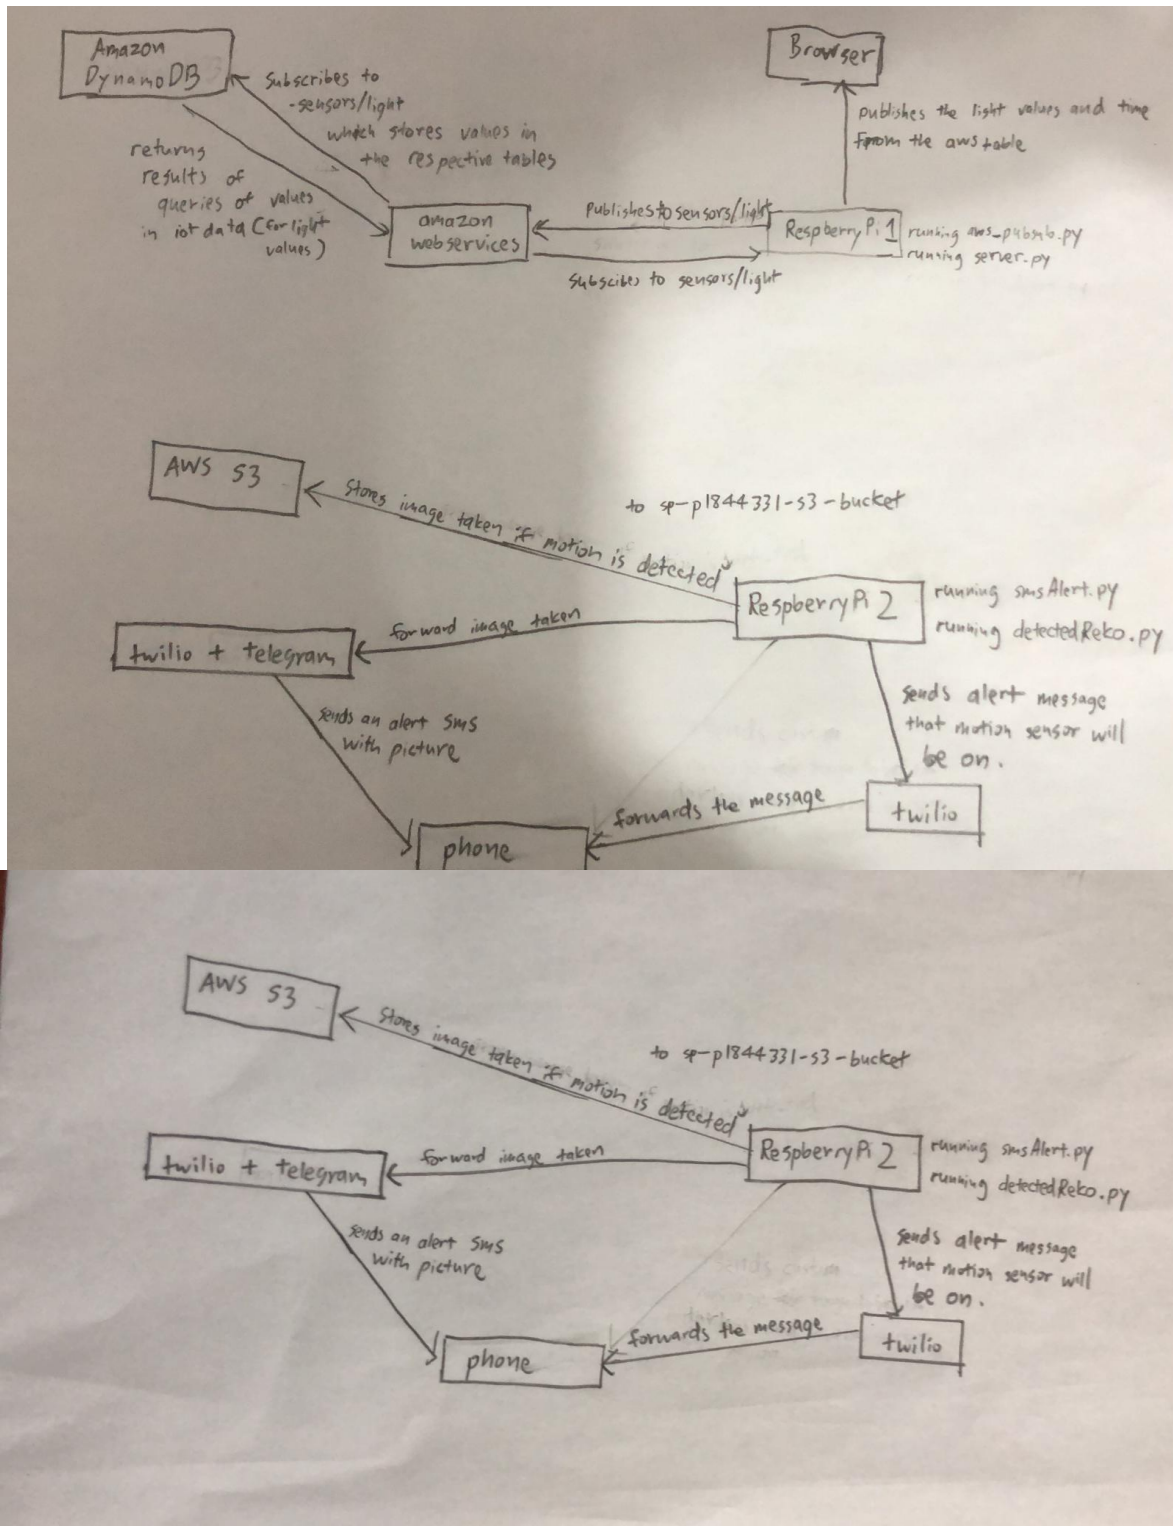 Amazon
DynamoDB
Subscribes to
-sensors/light
which stores values in
the respective tables
returns
results of
queries of values
in iot data (for light
values)
amazon
webservices
Publishes to sensors/light
Subscibes to sensors/light
Browser
publishes the light values and time
from the aws table
RespberryPi 1
running aws_pubsub.py
running server.py
AWS S3
Stores image taken if motion is detected
to sp-p1844331-s3-bucket
RespberryPi 2
running smsAlert.py
running detectedReko.py
forward image taken
twilio + telegram
sends an alert SMS
with picture
sends alert message
that motion sensor will
be on.
twilio
forwards the message
phone
AWS S3
Stores image taken if motion is detected
to sp-p1844331-s3-bucket
RespberryPi 2
running smsAlert.py
running detectedReko.py
forward image taken
twilio + telegram
sends an alert SMS
with picture
sends alert message
that motion sensor will
be on.
twilio
forwards the message
phone